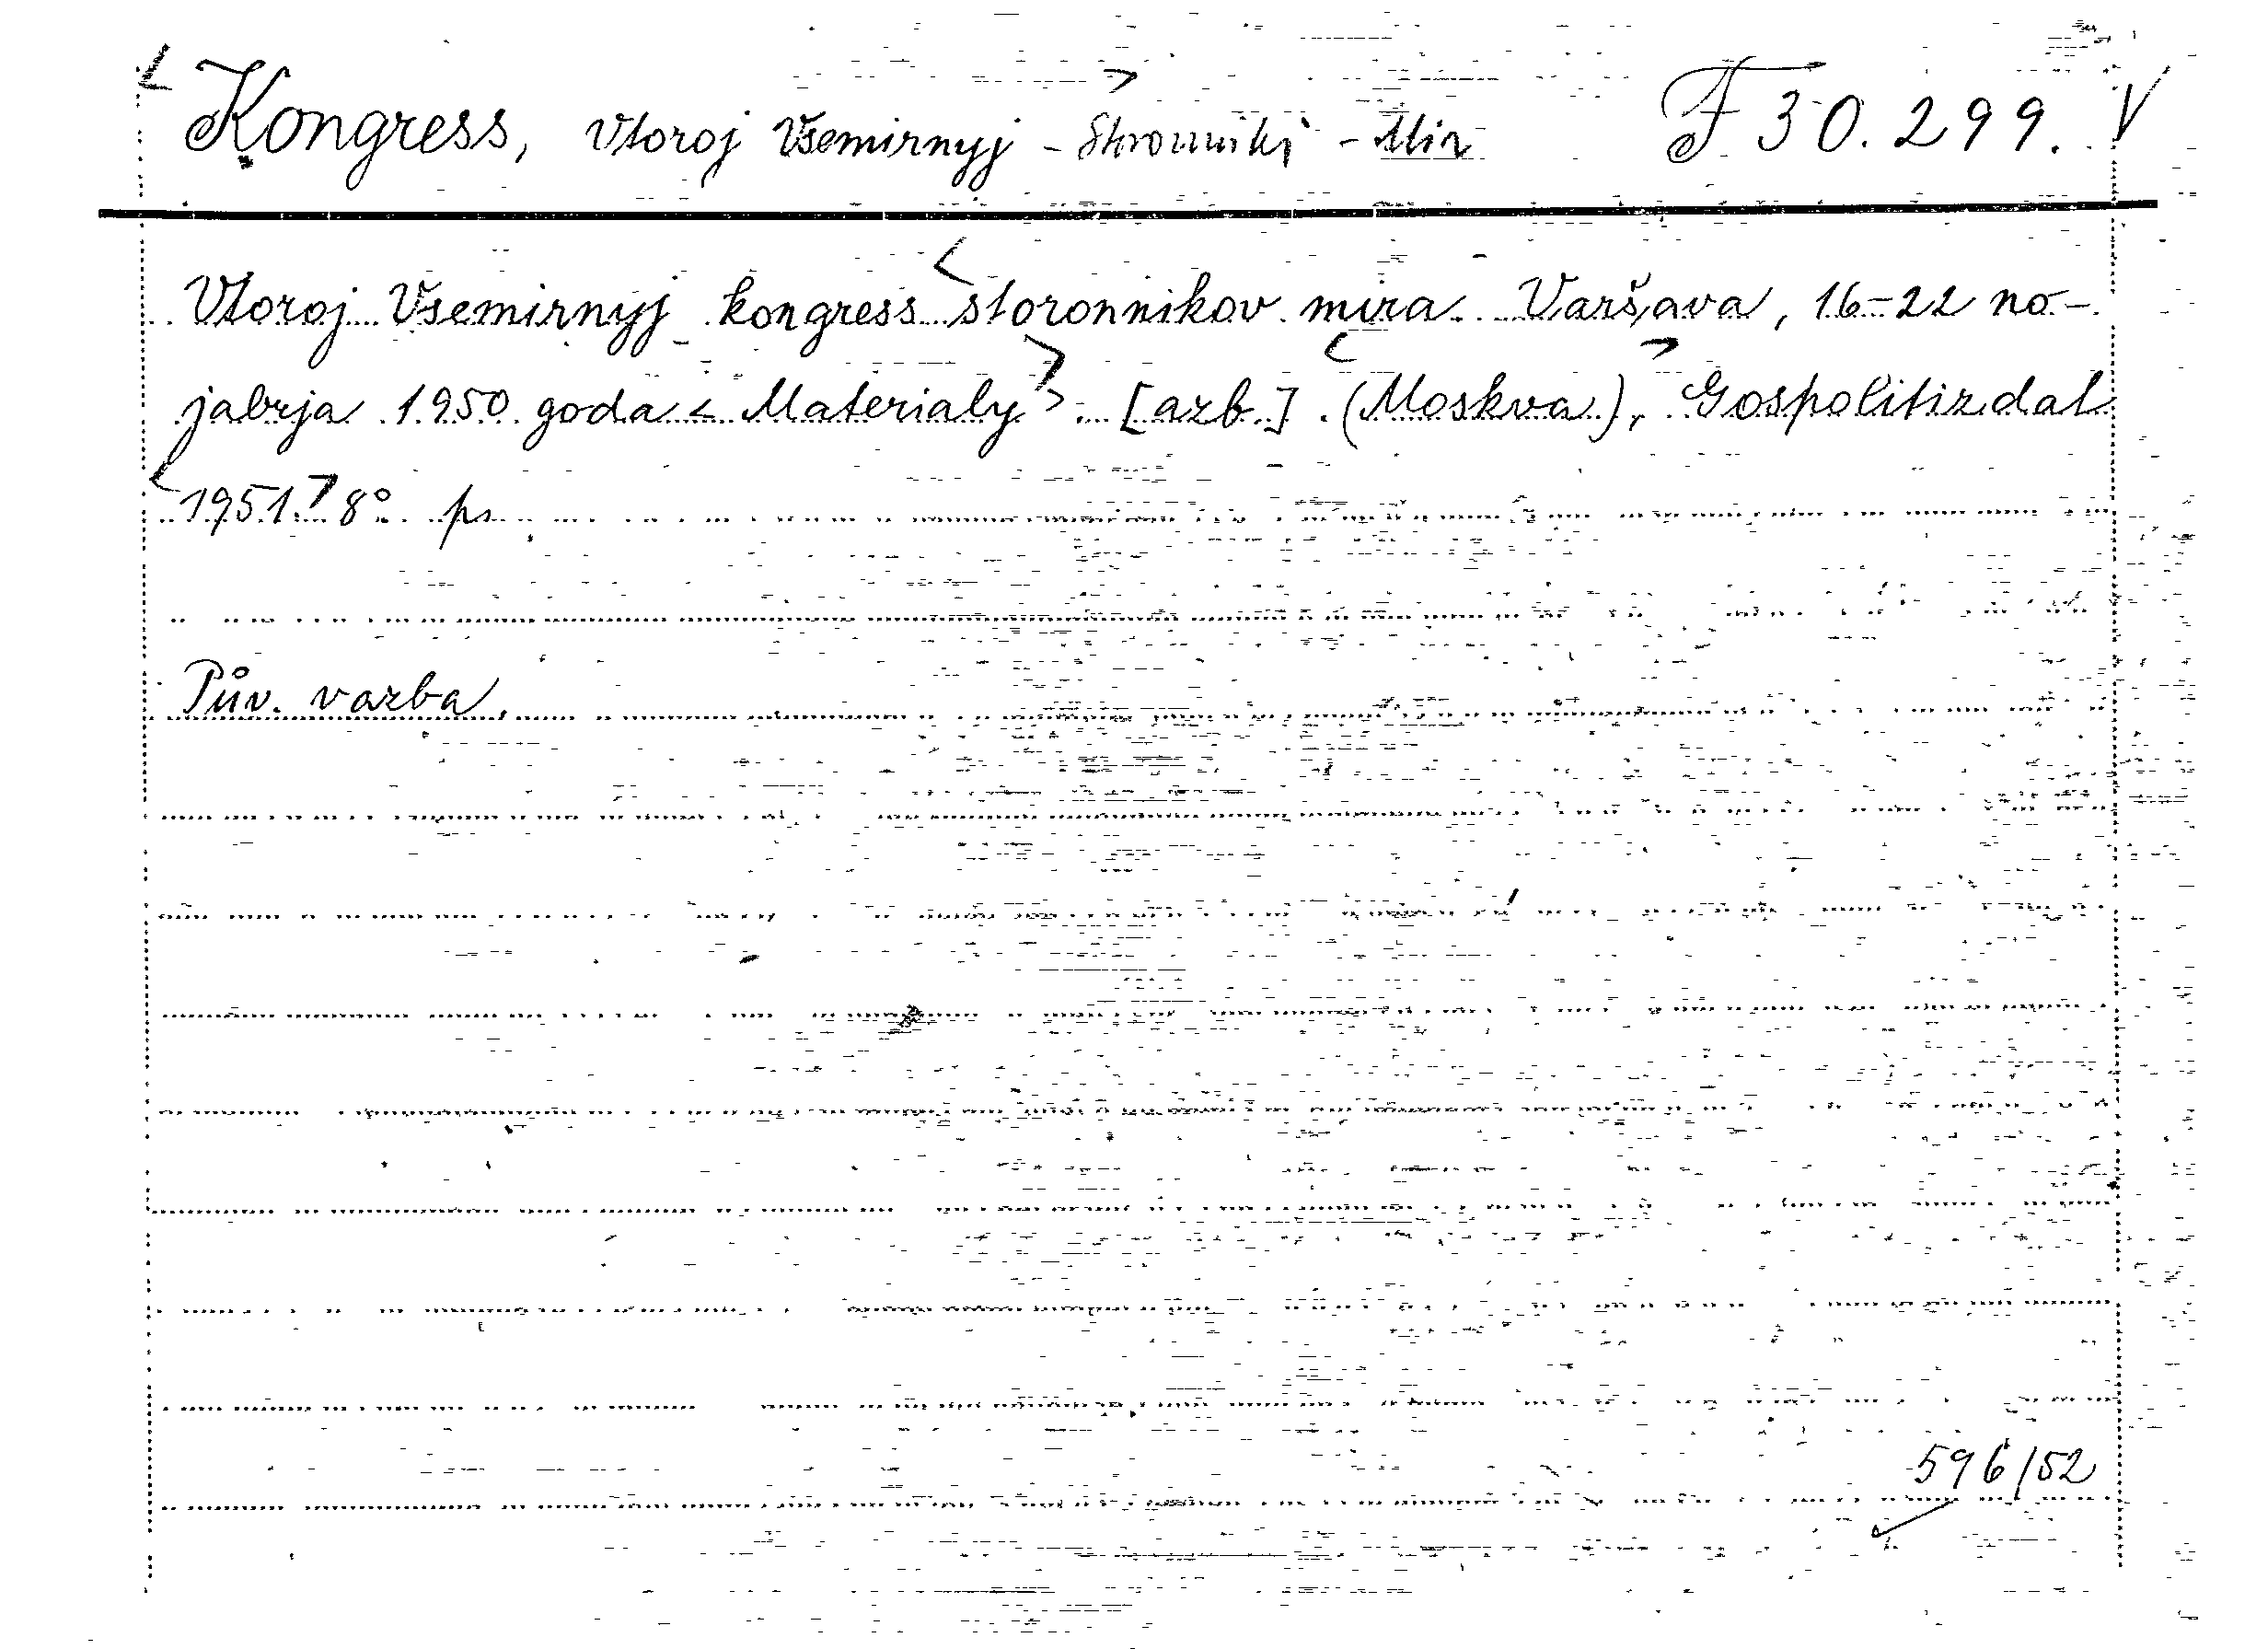 Kongress, Vtoroj Vsemirnyj - Storonniki - Mir F 30.299. V
Vtoroj Vsemirnyj kongress storonnikov mira. Varšava, 16-22 no-
jabrja 1950 goda < Materialy >. [azb.]. (Moskva), Gospolitizdat
1951. 8° pr.
Pův. vazba.
596/52